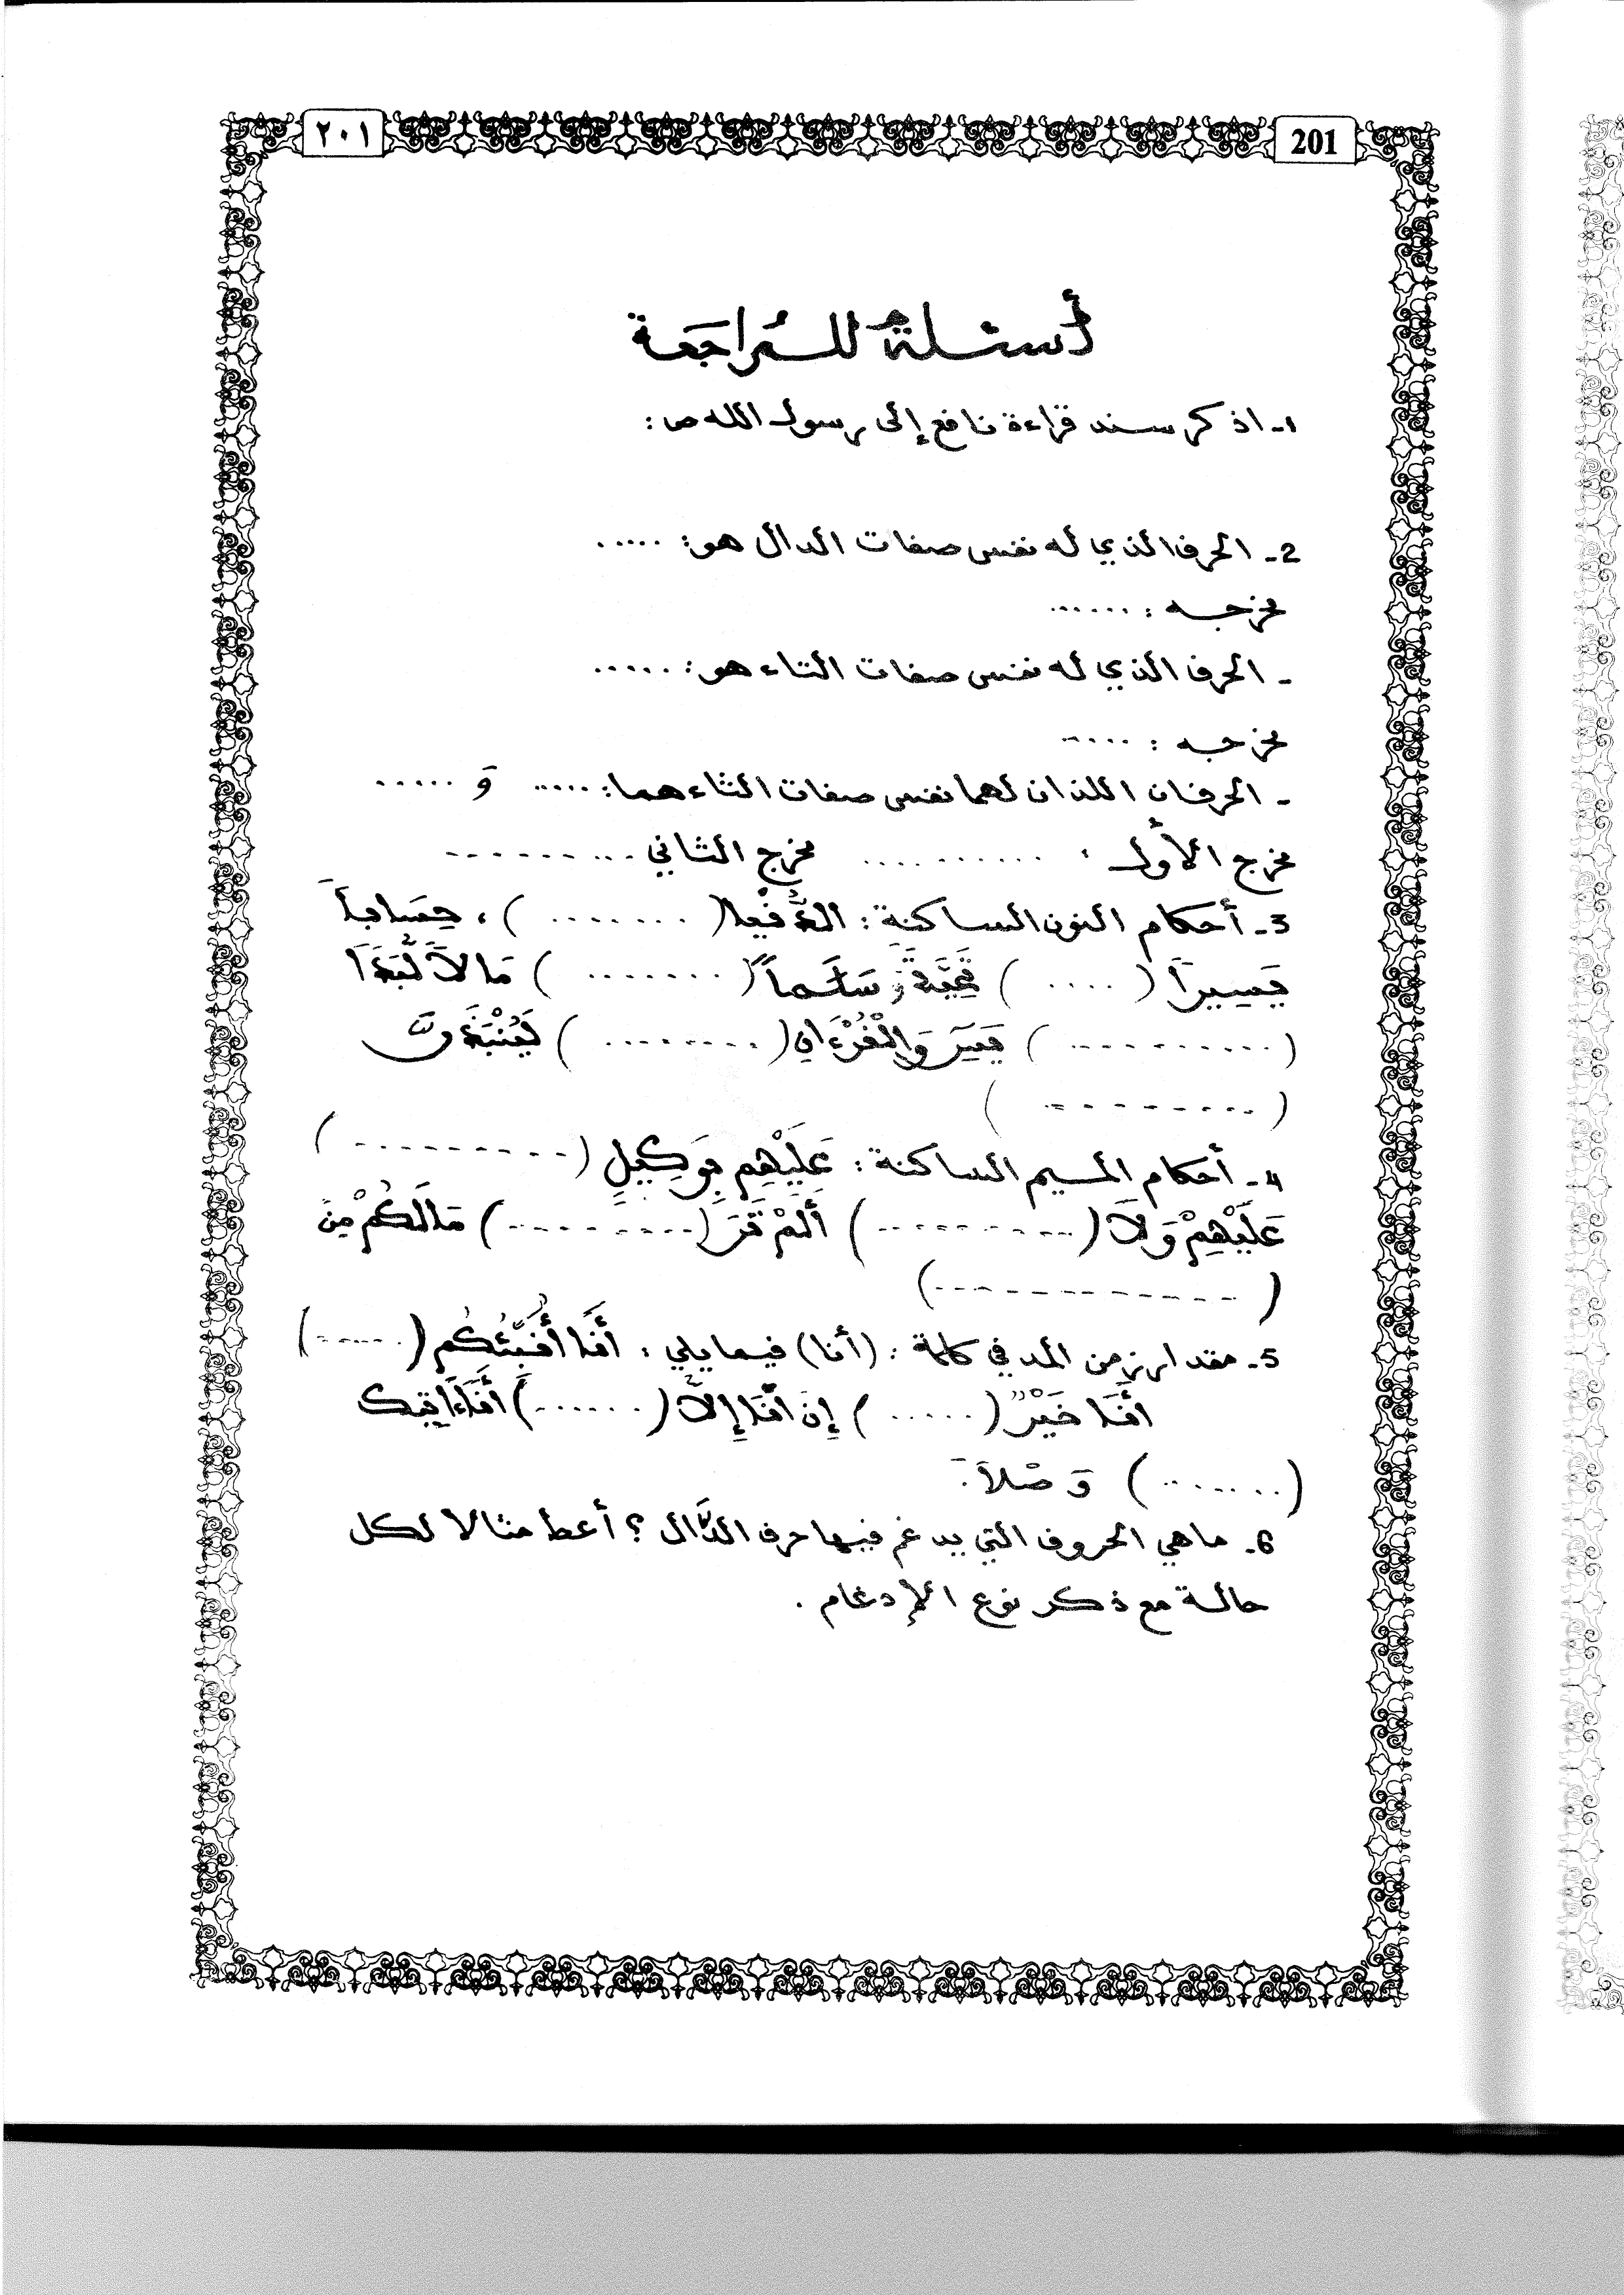 ٢٠١
201
أسئلة للمراجعة
1- اذكر سند قراءة نافع إلى رسول الله ص:
2- الحرف الذي له نفس صفات الدال هو: .....
مخرجه : ......
- الحرف الذي له نفس صفات التاء هو: .....
مخرجه : .....
- الحرفان اللذان لهما نفس صفات الثاء هما: ..... وَ .....
مخرج الأول : .......... مخرج الثاني ..........
3- أحكام النون الساكنة : الدُّنْيا ( ........ ) ، حِسَاباً
يَسِيراً ( .... ) تَحِيَّةً وَسَلَماً ( ....... ) مَالاً لُّبَداً
( .......... ) يَسِ وَالْقُرْءَانِ ( ........ ) لَيُنْبَذَنَّ
( ......... )
4- أحكام الميم الساكنة : عَلَيْهِم بِوَكِيلٍ ( ......... )
عَلَيْهِمْ وَلاَ ( ......... ) أَلَمْ تَرَ ( ......... ) مَالَكُمْ مِن
( ............ )
5- مقدار زمن المد في كلمة : (أنا) فيما يلي : أَنَا أُنَبِّئُكُم ( ...... )
أَنَا خَيْرٌ ( ..... ) إِنَ اَنَا إِلاَّ ( ....... ) أَنَا ءَاتِيكَ
( ....... ) وَصْلاً .
6- ماهي الحروف التي يدغم فيها حرف الذَّال ؟ أعط مثالا لكل
حالة مع ذكر نوع الإدغام .